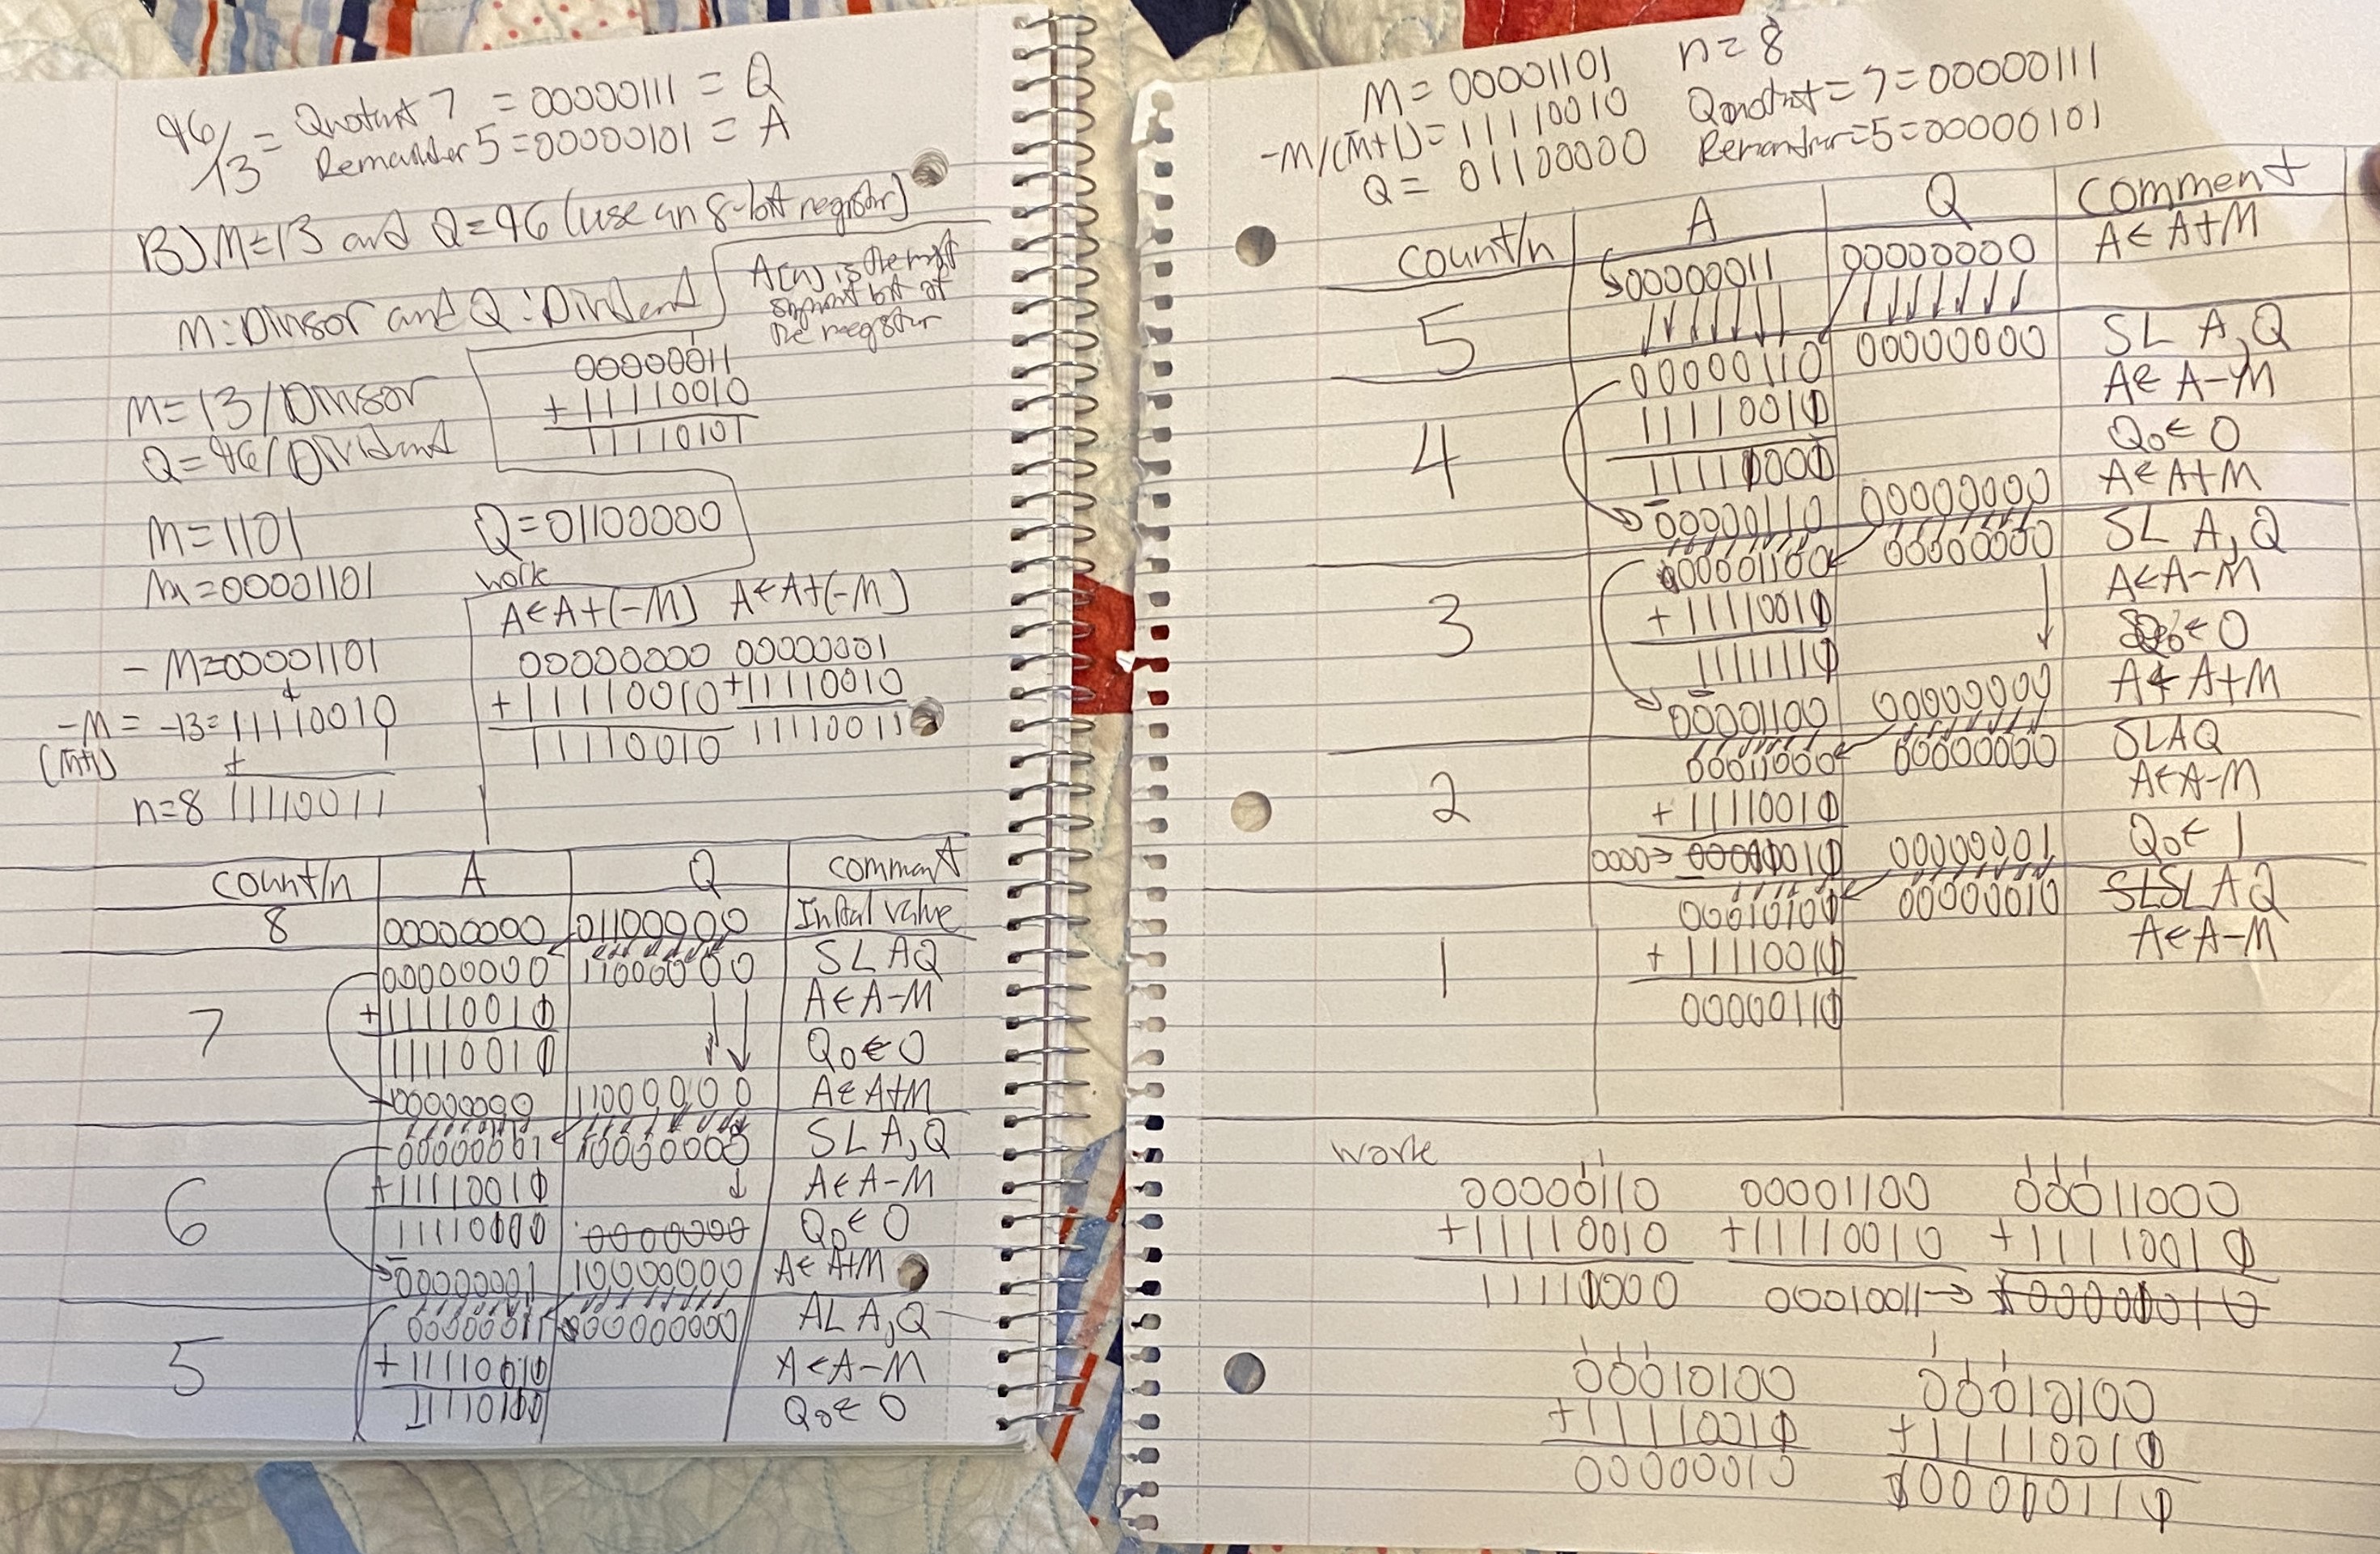 96/13 = Quotant 7 = 00000111 = Q
Remainder 5 = 00000101 = A
B) M=13 and Q=96 (use an 8-bit register)
M: Divisor and Q: Divident
A(n) is the most
bit of
the reegister
00000011
+ 11110010
11110101
M=13/Divisor
Q=96/Divident
M=1101
M=00001101
Q=01100000
- M=00001101
-M = -13=11110010
(M̄+1) + 1
n=8 11110011
work
A←A+(-M) A←A+(-M)
00000000 00000001
+11110010 +11110010
11110010 11110011
count/n A Q comment
8 00000000 01100000 Initial value
7 00000000 11000000 SL AQ
+11110010 A←A-M
11110010 Q₀←0
00000000 11000000 A←A+M
6 00000001 10000000 SL A,Q
+11110010 A←A-M
11110000 00000000 Q₀←0
00000001 10000000 A←A+M
5 00000011 00000000 AL A,Q
+11110010 A←A-M
11110100 Q₀←0
M=00001101 n=8
-M/(M̄+1)=11110010 Quotint=7=00000111
Q= 01100000 Remander=5=00000101
count/n A Q comment
5 00000011 00000000 A←A+M
4 00000110 00000000 SL A,Q
11110010 A←A-M
11110000 Q₀←0
00000110 00000000 A←A+M
3 00001100 00000000 SL A,Q
+11110010 A←A-M
11111110 Q₀←0
00001100 00000000 A←A+M
2 00011000 00000000 SLAQ
+11110010 A←A-M
00001010 00000001 Q₀←1
1 00010100 00000010 SLAQ
+11110010 A←A-M
00000110
work
00000110 00001100 00011000
+11110010 +11110010 +11110010
11110000 00010011→
00010100 00010100
+11110010 +11110010
00000010 100000110